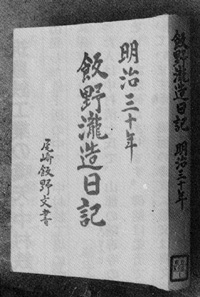 明治三十年
飯野瀧造日記
尾崎飯野文書
飯野瀧造日記 明治三十年